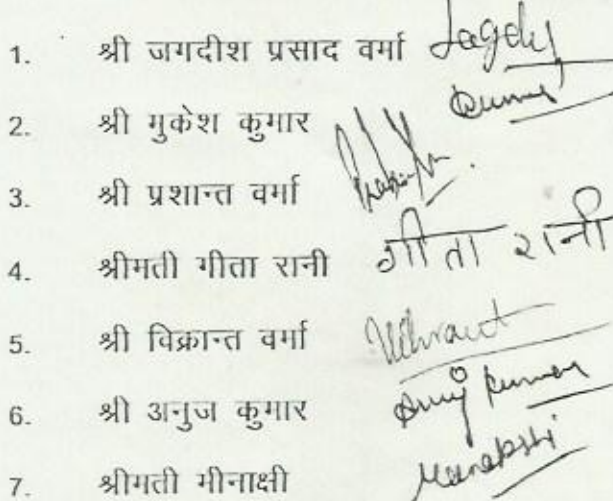 1. श्री जगदीश प्रसाद वर्मा Jagdish
2. श्री मुकेश कुमार Kumar
3. श्री प्रशान्त वर्मा
4. श्रीमती गीता रानी गीता रानी
5. श्री विक्रान्त वर्मा Vikrant
6. श्री अनुज कुमार Anuj Kumar
7. श्रीमती मीनाक्षी Meenakshi